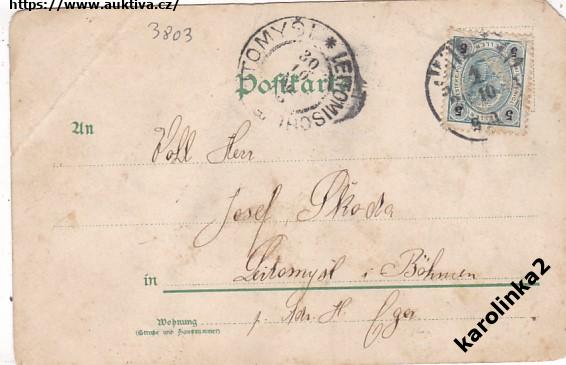 https://www.auktiva.cz/
3803
LITOMYŠL * LEITOMISCHL
30
10
Postkarte
5 5
5 5
10
An
Wohl Herr
Josef Škoda
in Leitomyšl i Böhmen
p. Adr. H. Eger
Wohnung
(Straße und Hausnummer)
karolinka2